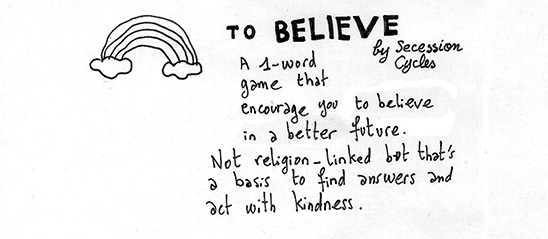 TO BELIEVE
by Secession
Cycles
A 1-word
game that
encourage you to believe
in a better future.
Not religion-linked but that's
a basis to find answers and
act with kindness.